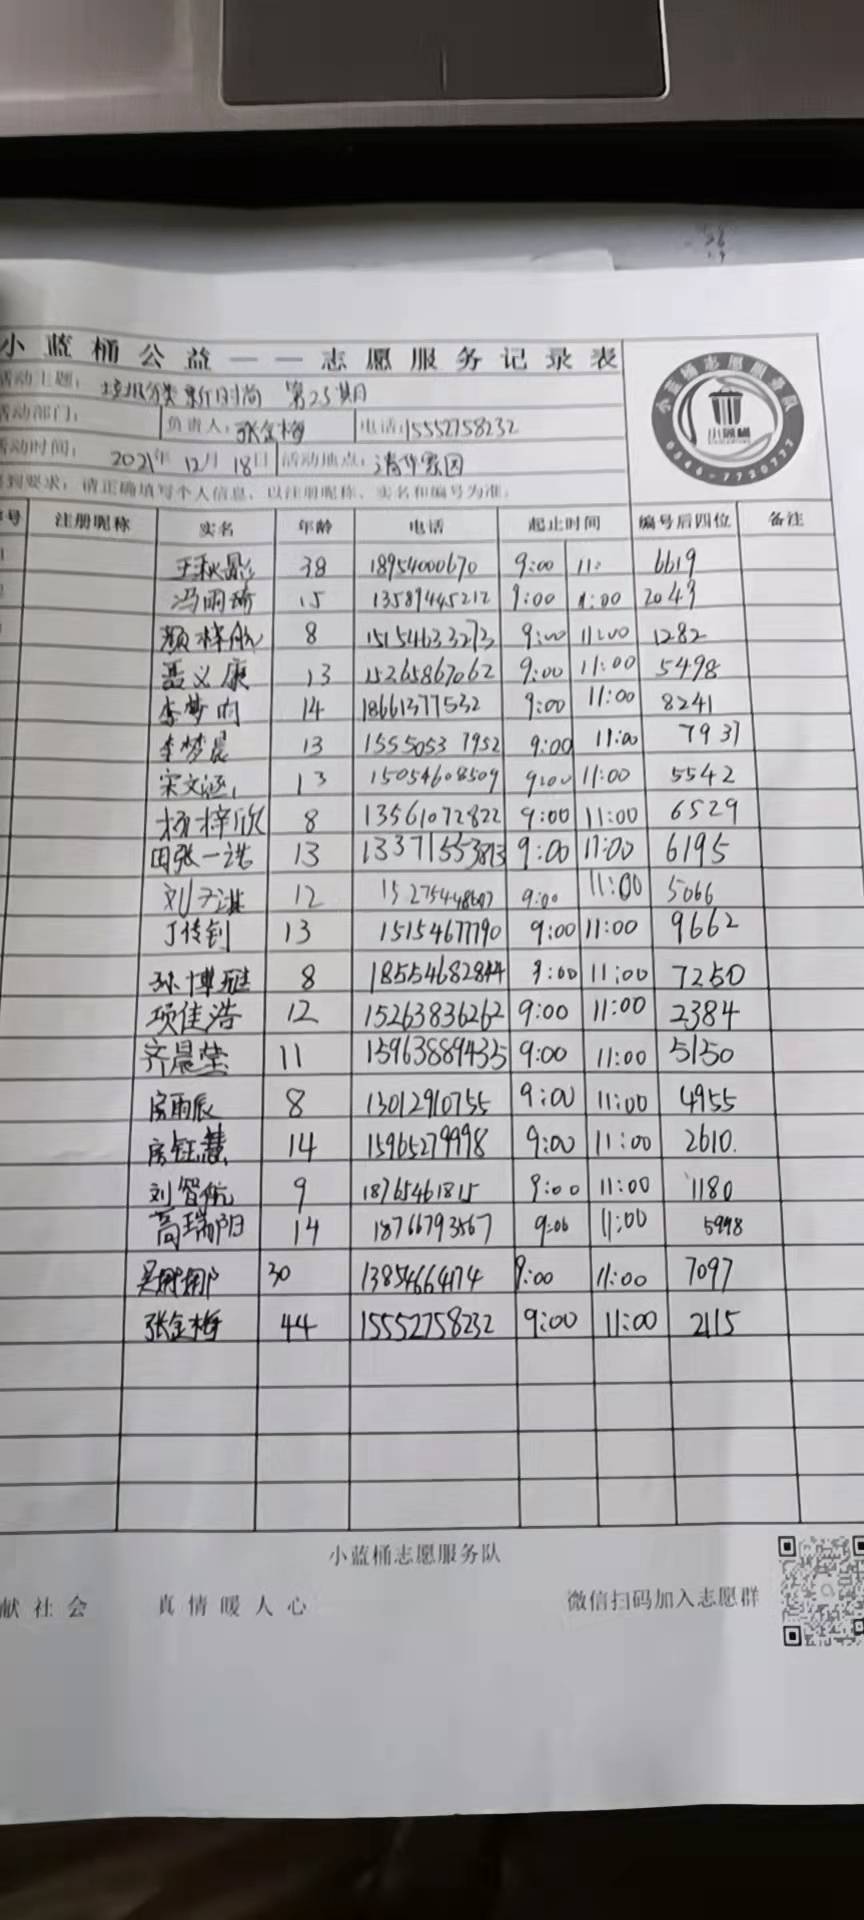 小蓝桶公益——志愿服务记录表
活动主题：垃圾分类新时尚 第25期
活动部门： 负责人：张金梅 电话：15552758232
活动时间：2021年12月18日 活动地点：清华家园
到要求：请正确填写个人信息，以注册昵称、实名和编号为准。
小蓝桶志愿服务队
小蓝桶
0546-7720777
号 注册昵称 实名 年龄 电话 起止时间 编号后四位 备注
王秋影 38 18954000670 9:00 11: 6619
冯雨琦 15 13589445212 9:00 11:00 2049
颜梓航 8 15154633273 9:00 11:00 1282
聂义康 13 15265867062 9:00 11:00 5498
李梦内 14 18661377532 9:00 11:00 8241
李梦晨 13 15550537952 9:00 11:00 7937
宋文涵 13 15054608509 9:00 11:00 5542
杨梓欣 8 13561072822 9:00 11:00 6529
田张一诺 13 13371553873 9:00 11:00 6195
刘子淇 12 9:00 11:00 5066
丁传钊 13 15154677790 9:00 11:00 9662
孙博冠 8 18554682844 9:00 11:00 7250
项佳浩 12 15263836262 9:00 11:00 2384
齐晨莹 11 15963889435 9:00 11:00 5150
房雨辰 8 13012910755 9:00 11:00 4955
房钰慧 14 15965279998 9:00 11:00 2610.
刘智航 9 18765461815 9:00 11:00 1180
高瑞阳 14 18766793567 9:00 11:00 5998
吴娜娜 30 13854664174 9:00 11:00 7097
张金梅 44 15552758232 9:00 11:00 2115
小蓝桶志愿服务队
献社会 真情暖人心 微信扫码加入志愿群